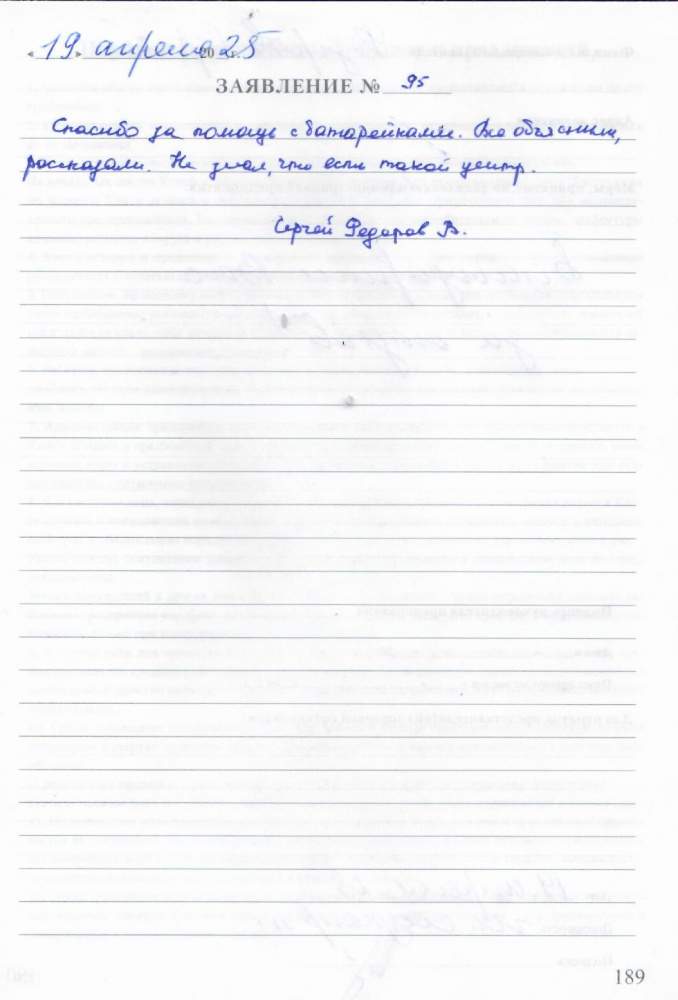 « 19 » апреля 2025
ЗАЯВЛЕНИЕ № 95
Спасибо за помощь с батарейками. Все объяснили,
рассказали. Не знал, что есть такой центр.
Сергей Федоров В.
189